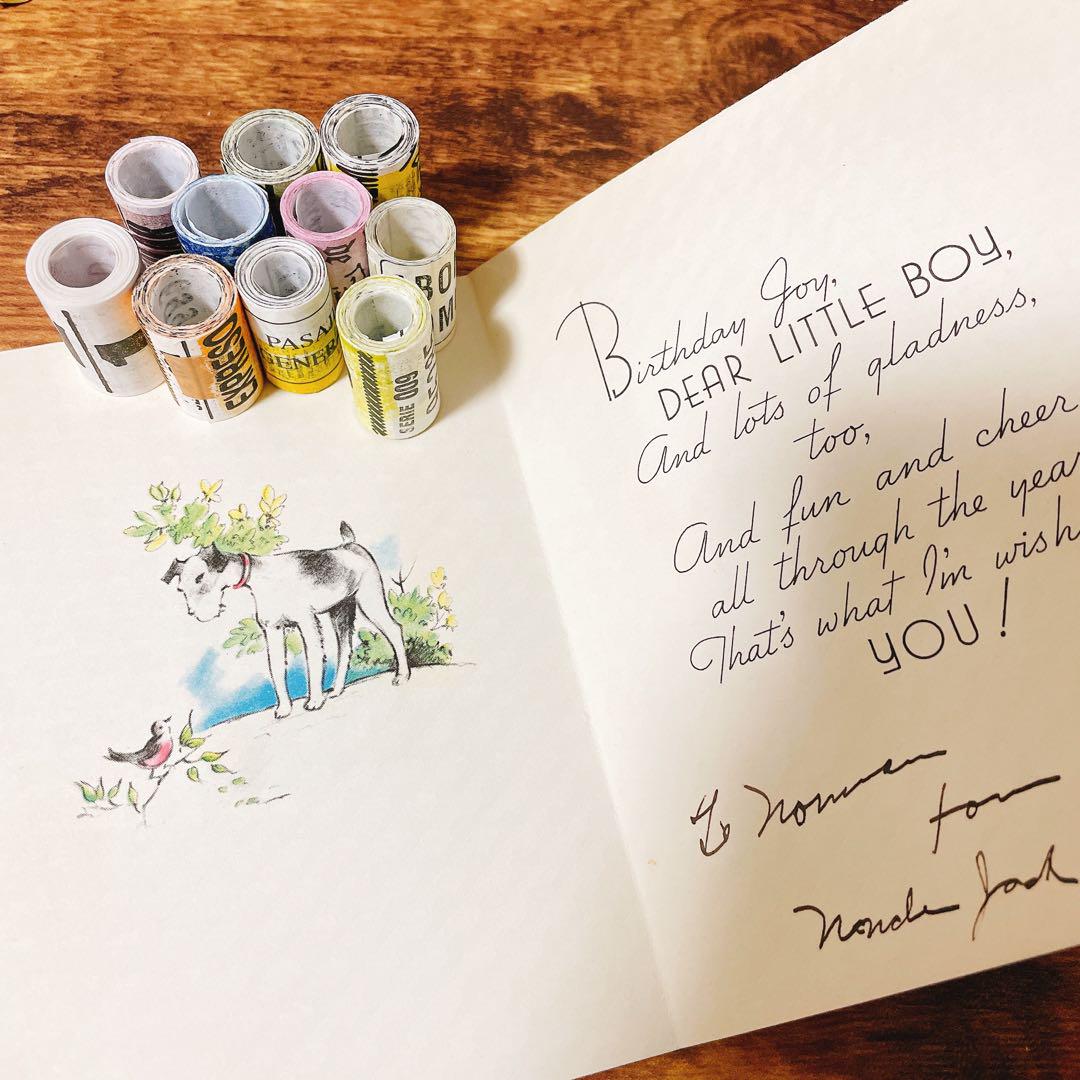 EXPRESO
PASAJ
GENERA
SERIE 009
BO
M
Birthday Joy,
DEAR LITTLE BOY,
And lots of gladness,
too,
And fun and cheer
all through the year
That's what I'm wish
YOU!
To Norman
from
Jack